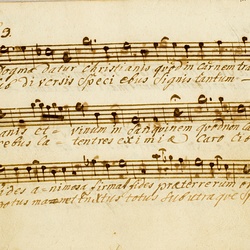 9.
Dogma datur Christianis quod in carnem tra
Sub diversis speci ebus signis tantum
panis et vinum in sanguinem quod non ca
rebus la tentres eximiæ Caro ci
vides a=nimosa firmat fides præter rerum o
potus ma=net Xtus totus sub utraque sp